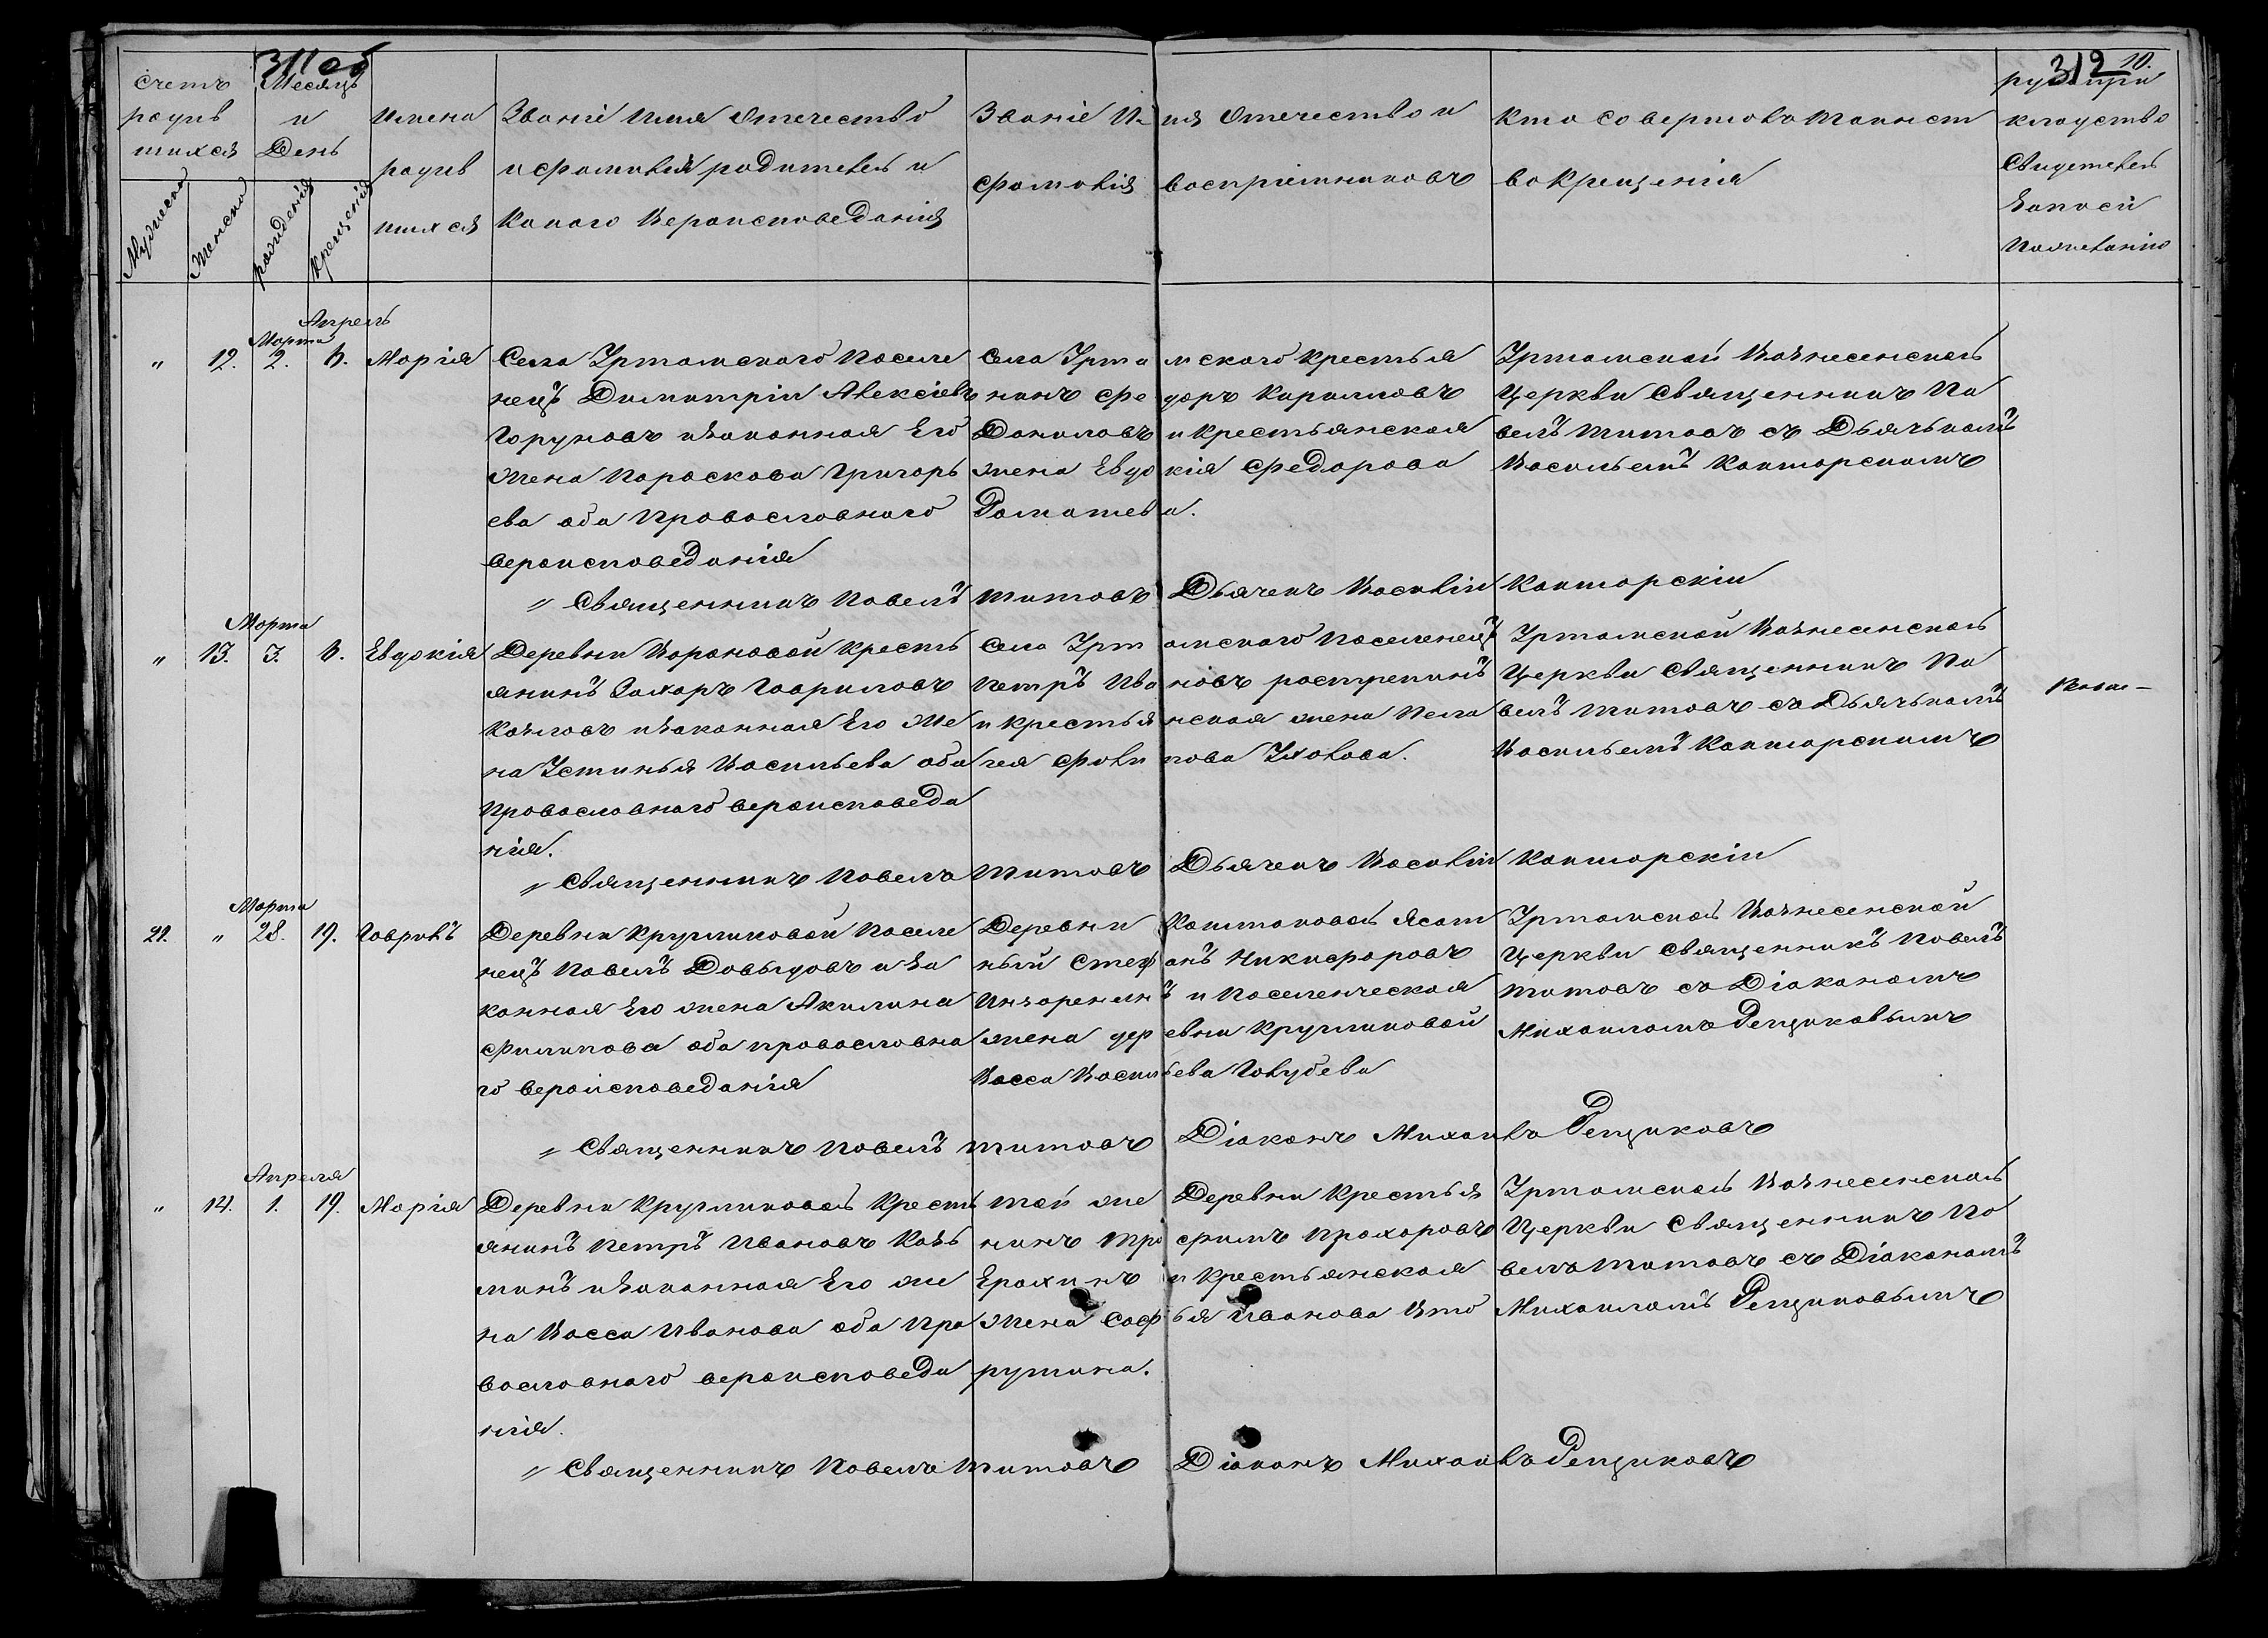 311об
312 10.
Счетъ
родив
шихся
Мужеска
Женска
Месяцъ
и
День
рождения
крещения
Имена
родив
шихся
Званіе Имя Отечество
и фамилія родителей и
Какого Вероисповеданія
Званіе Имя Отечество и
фамилія воспріемниковъ
Кто совершалъ таинст
во Крещенія
рукопри
кладство
Свидетелей
записи
Пожеланію
Марта
Апрель
" 12. 2. 6. Марія
Села Уртамского поселе
нецъ Димитрій Алексіевъ
Горуновъ изаконная Его
жена Параскова Григорь
ева оба Православнаго
вероисповеданія
Села Уртамского крестья
нинъ Федоръ Кириловъ
Даниловъ и Крестьянская
жена Евдокія Федорова
Раматева.
Уртамской Вознесенской
Церкви Священникъ Па
велъ Титовъ съ Дьячькомъ
Васильемъ Канторскимъ
" Священникъ Павелъ Титовъ Дьячекъ Василій Канторскій
Марта
" 13. 3. 6. Евдокія
Деревни Вороновой Кресть
янинъ Захаръ Гавриловъ
Козловъ изаконная Его Же
на Устинья Васильева оба
Православнаго вероисповеда
нія.
Села Уртамского поселенецъ
Петръ Ивановъ растрепинъ
и крестьянская жена Пела
гея Филипова Ухалова.
Уртамской Вознесенской
Церкви Священникъ Па
велъ Титовъ съ Дьячькомъ
Васильемъ Канторскимъ
" Священникъ Павелъ Титовъ Дьячекъ Василій Канторскій
Марта
21. " 28. 19. Гаврилъ
Деревни Кругликовой Поселе
нецъ Павелъ Давыдовъ и За
конная Его жена Акилина
Филипова оба православна
го вероисповеданія
Деревни Каштаковой Ясаш
ный Стефанъ Никифоровъ
и Поселенческая
жена деревни Кругликовой
Васса Васильева Голубева
Уртамской Вознесенской
Церкви Священникъ Павелъ
Титовъ съ Діакономъ
Михаиломъ Рещиковымъ
" Священникъ Павелъ Титовъ Діаконъ Михаилъ Рещиковъ
Апреля
" 14. 1. 19. Марія
Деревни Кругликовой Кресть
янинъ Петръ Ивановъ Козь
минъ изаконная Его же
на Васса Иванова оба Пра
вославнаго вероисповеда
нія.
Той же Деревни Крестья
нинъ Трофимъ Прохоровъ
Ерохинъ и Крестьянская
Жена Софья Иванова Што
рушина.
Уртамской Вознесенской
Церкви Священникъ Па
велъ Титовъ съ Діакономъ
Михаиломъ Рещиковымъ
" Священникъ Павелъ Титовъ Діаконъ Михаилъ Рещиковъ